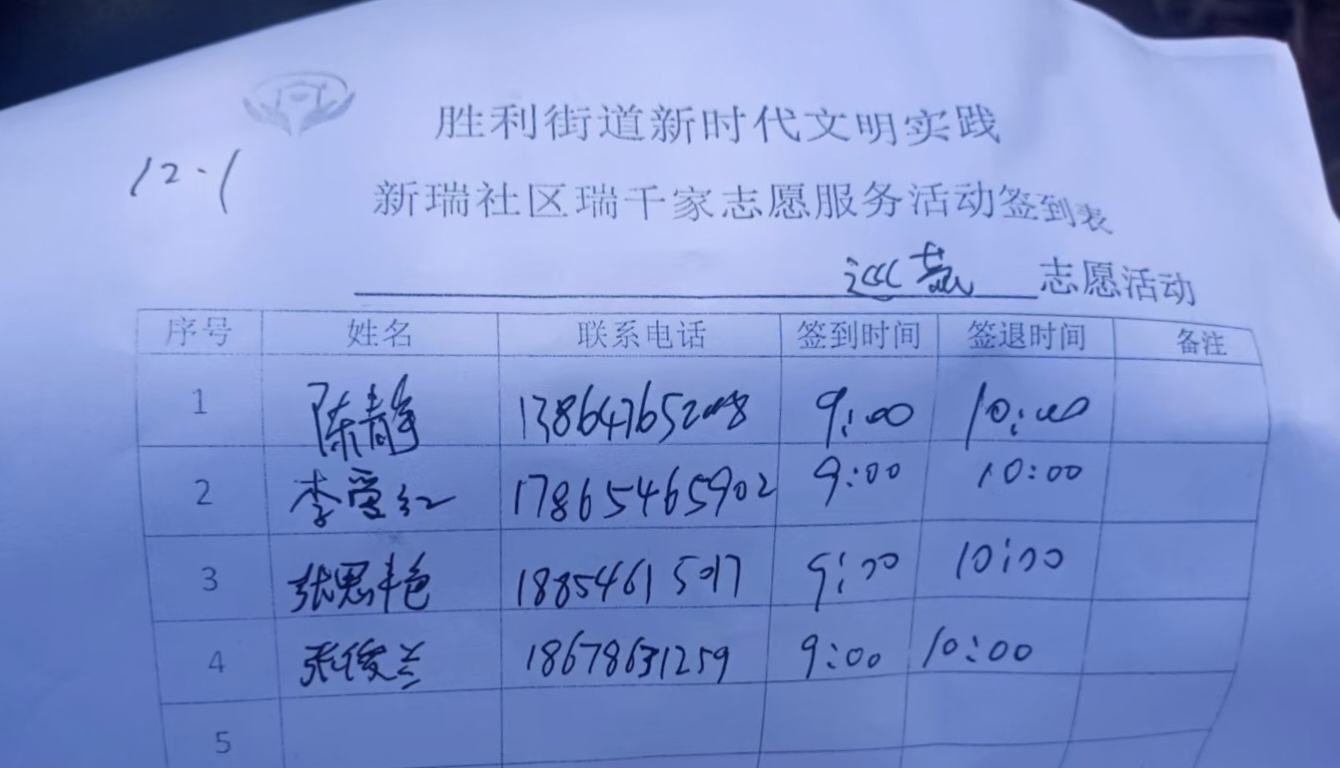 胜利街道新时代文明实践
12.1
新瑞社区瑞千家志愿服务活动签到表
志愿活动
序号 姓名 联系电话 签到时间 签退时间 备注
1 陈静 9:00 10:00
2 李爱红 17865465902 9:00 10:00
3 张思艳 18854615017 9:00 10:00
4 张俊兰 18678631259 9:00 10:00
5